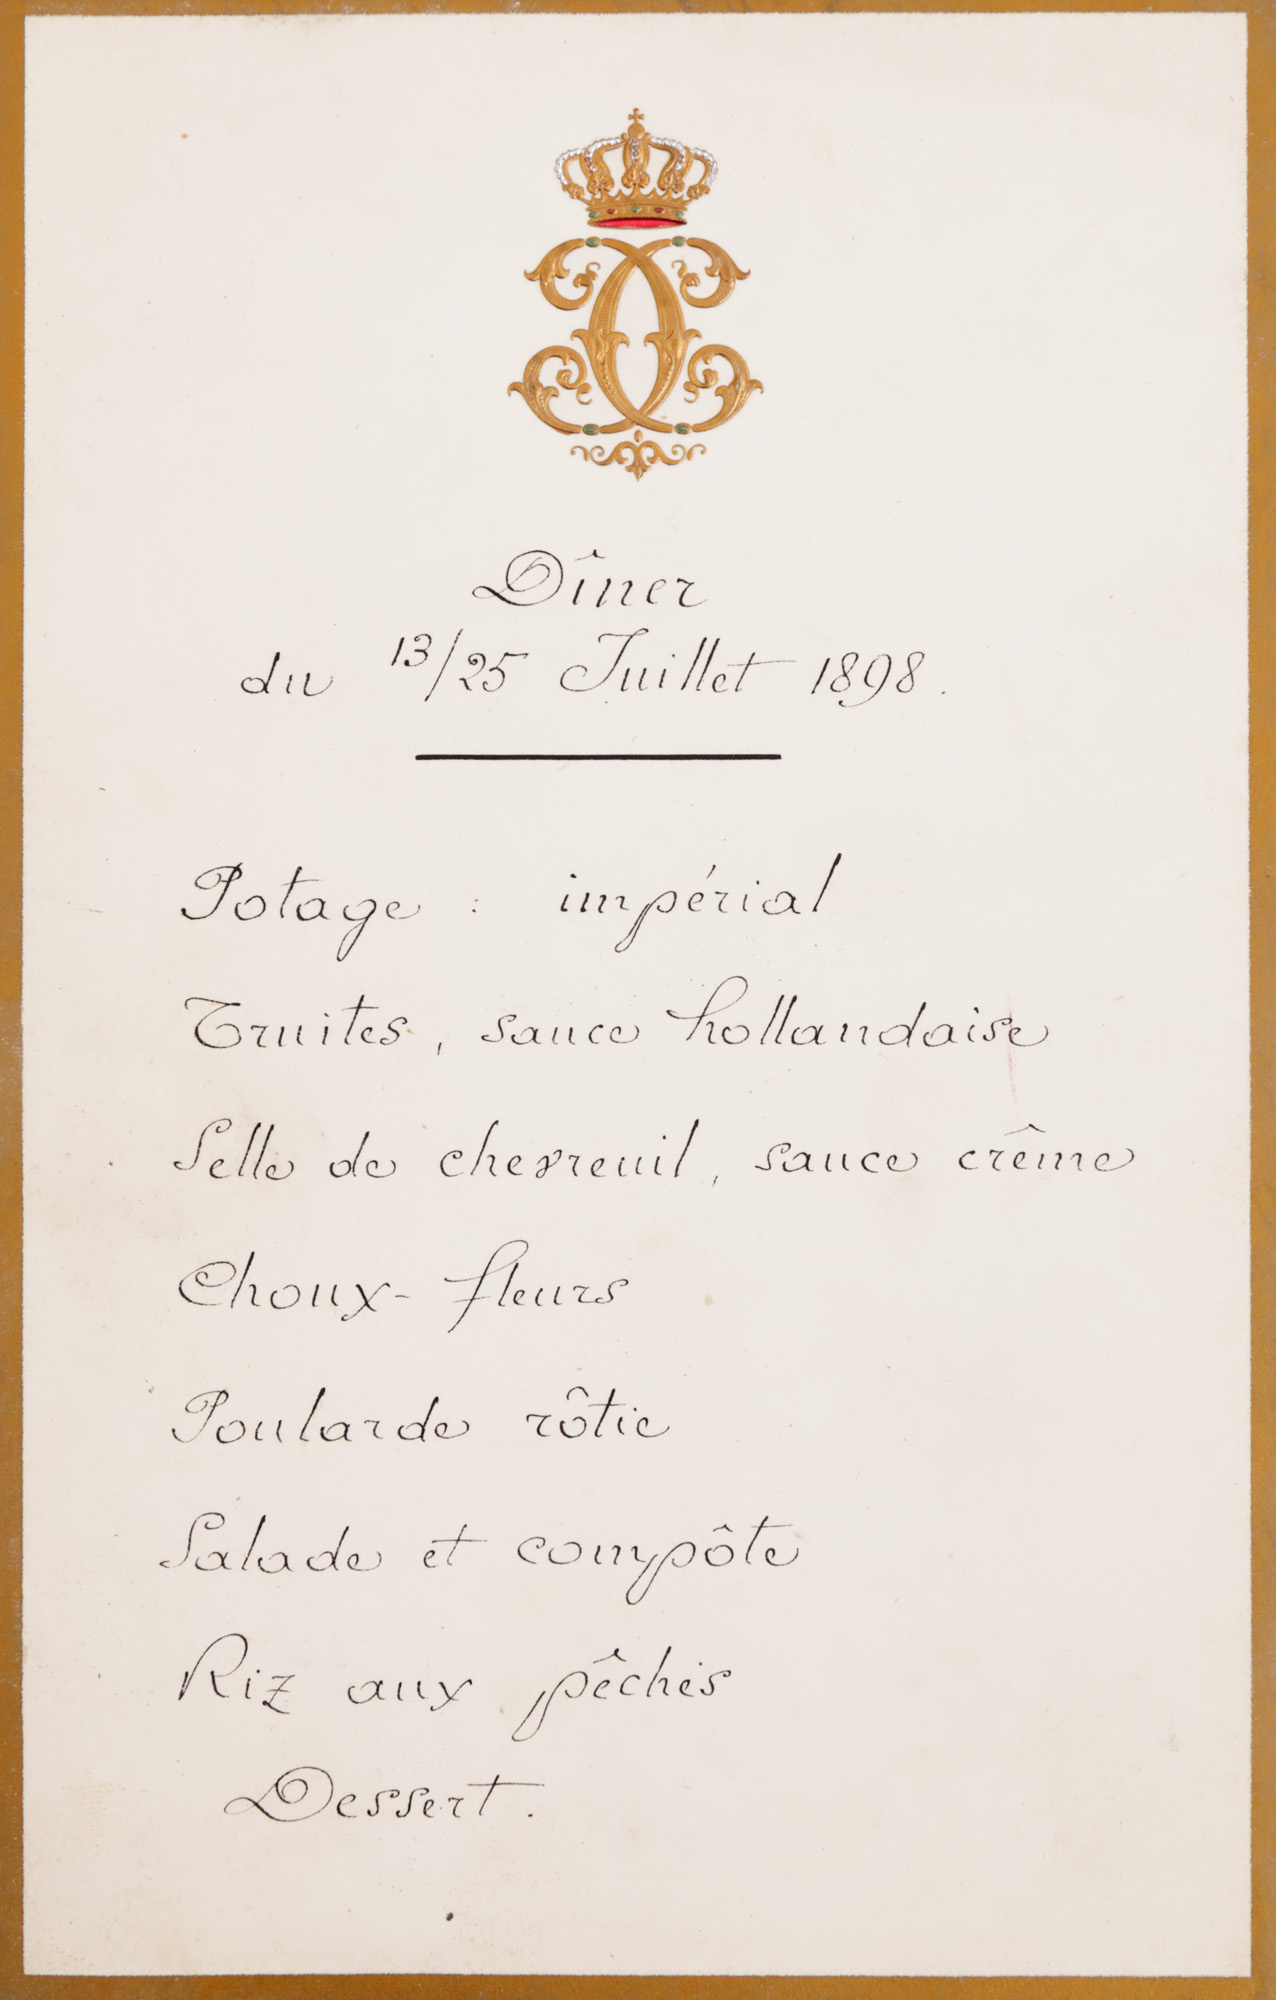 Dîner
du 13/25 Juillet 1898.
Potage : impérial
Truites, sauce hollandaise
Selle de chevreuil, sauce crême
Choux-fleurs
Poularde rôtie
Salade et compôte
Riz aux pêches
Dessert.